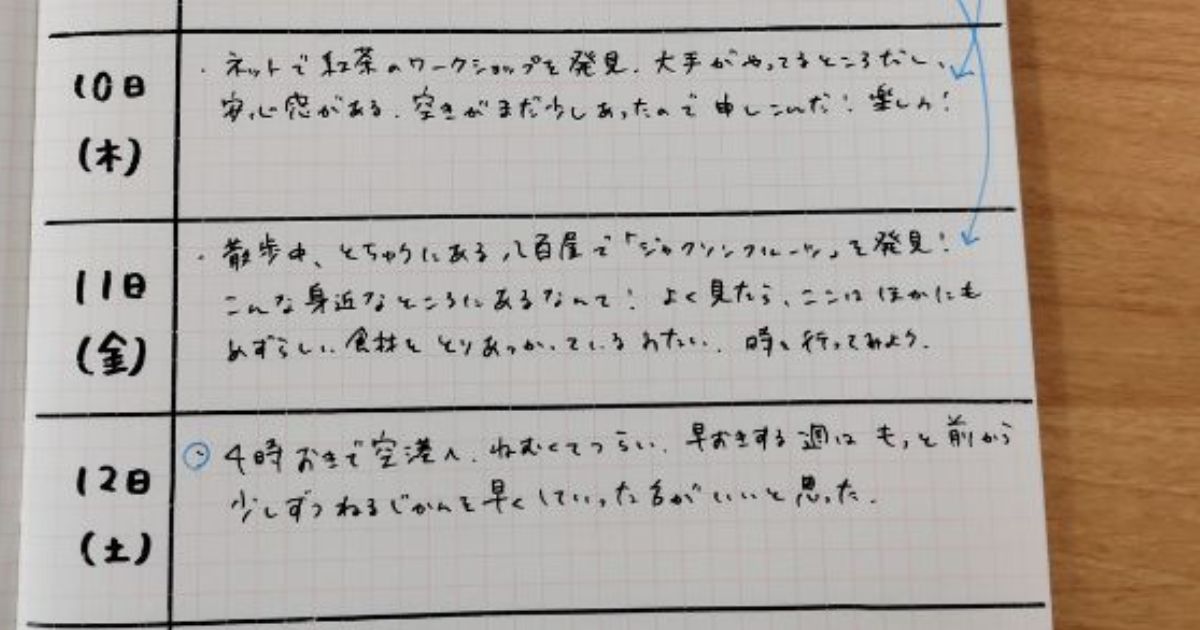 10日
(木)
・ネットで紅茶のワークショップを発見。大手がやってるところだし、
安心感がある。空きがまだ少しあったので申しこんだ!楽しみ!
11日
(金)
・散歩中、とちゅうにある八百屋で「ジャクソンフルーツ」を発見!
こんな身近なところにあるなんて!よく見たら、ここはほかにも
めずらしい食材をとりあつかっているみたい。時々行ってみよう。
12日
(土)
4時おきで空港へ。ねむくてつらい。早おきする週はもっと前から
少しずつねるじかんを早くしていった方がいいと思った。